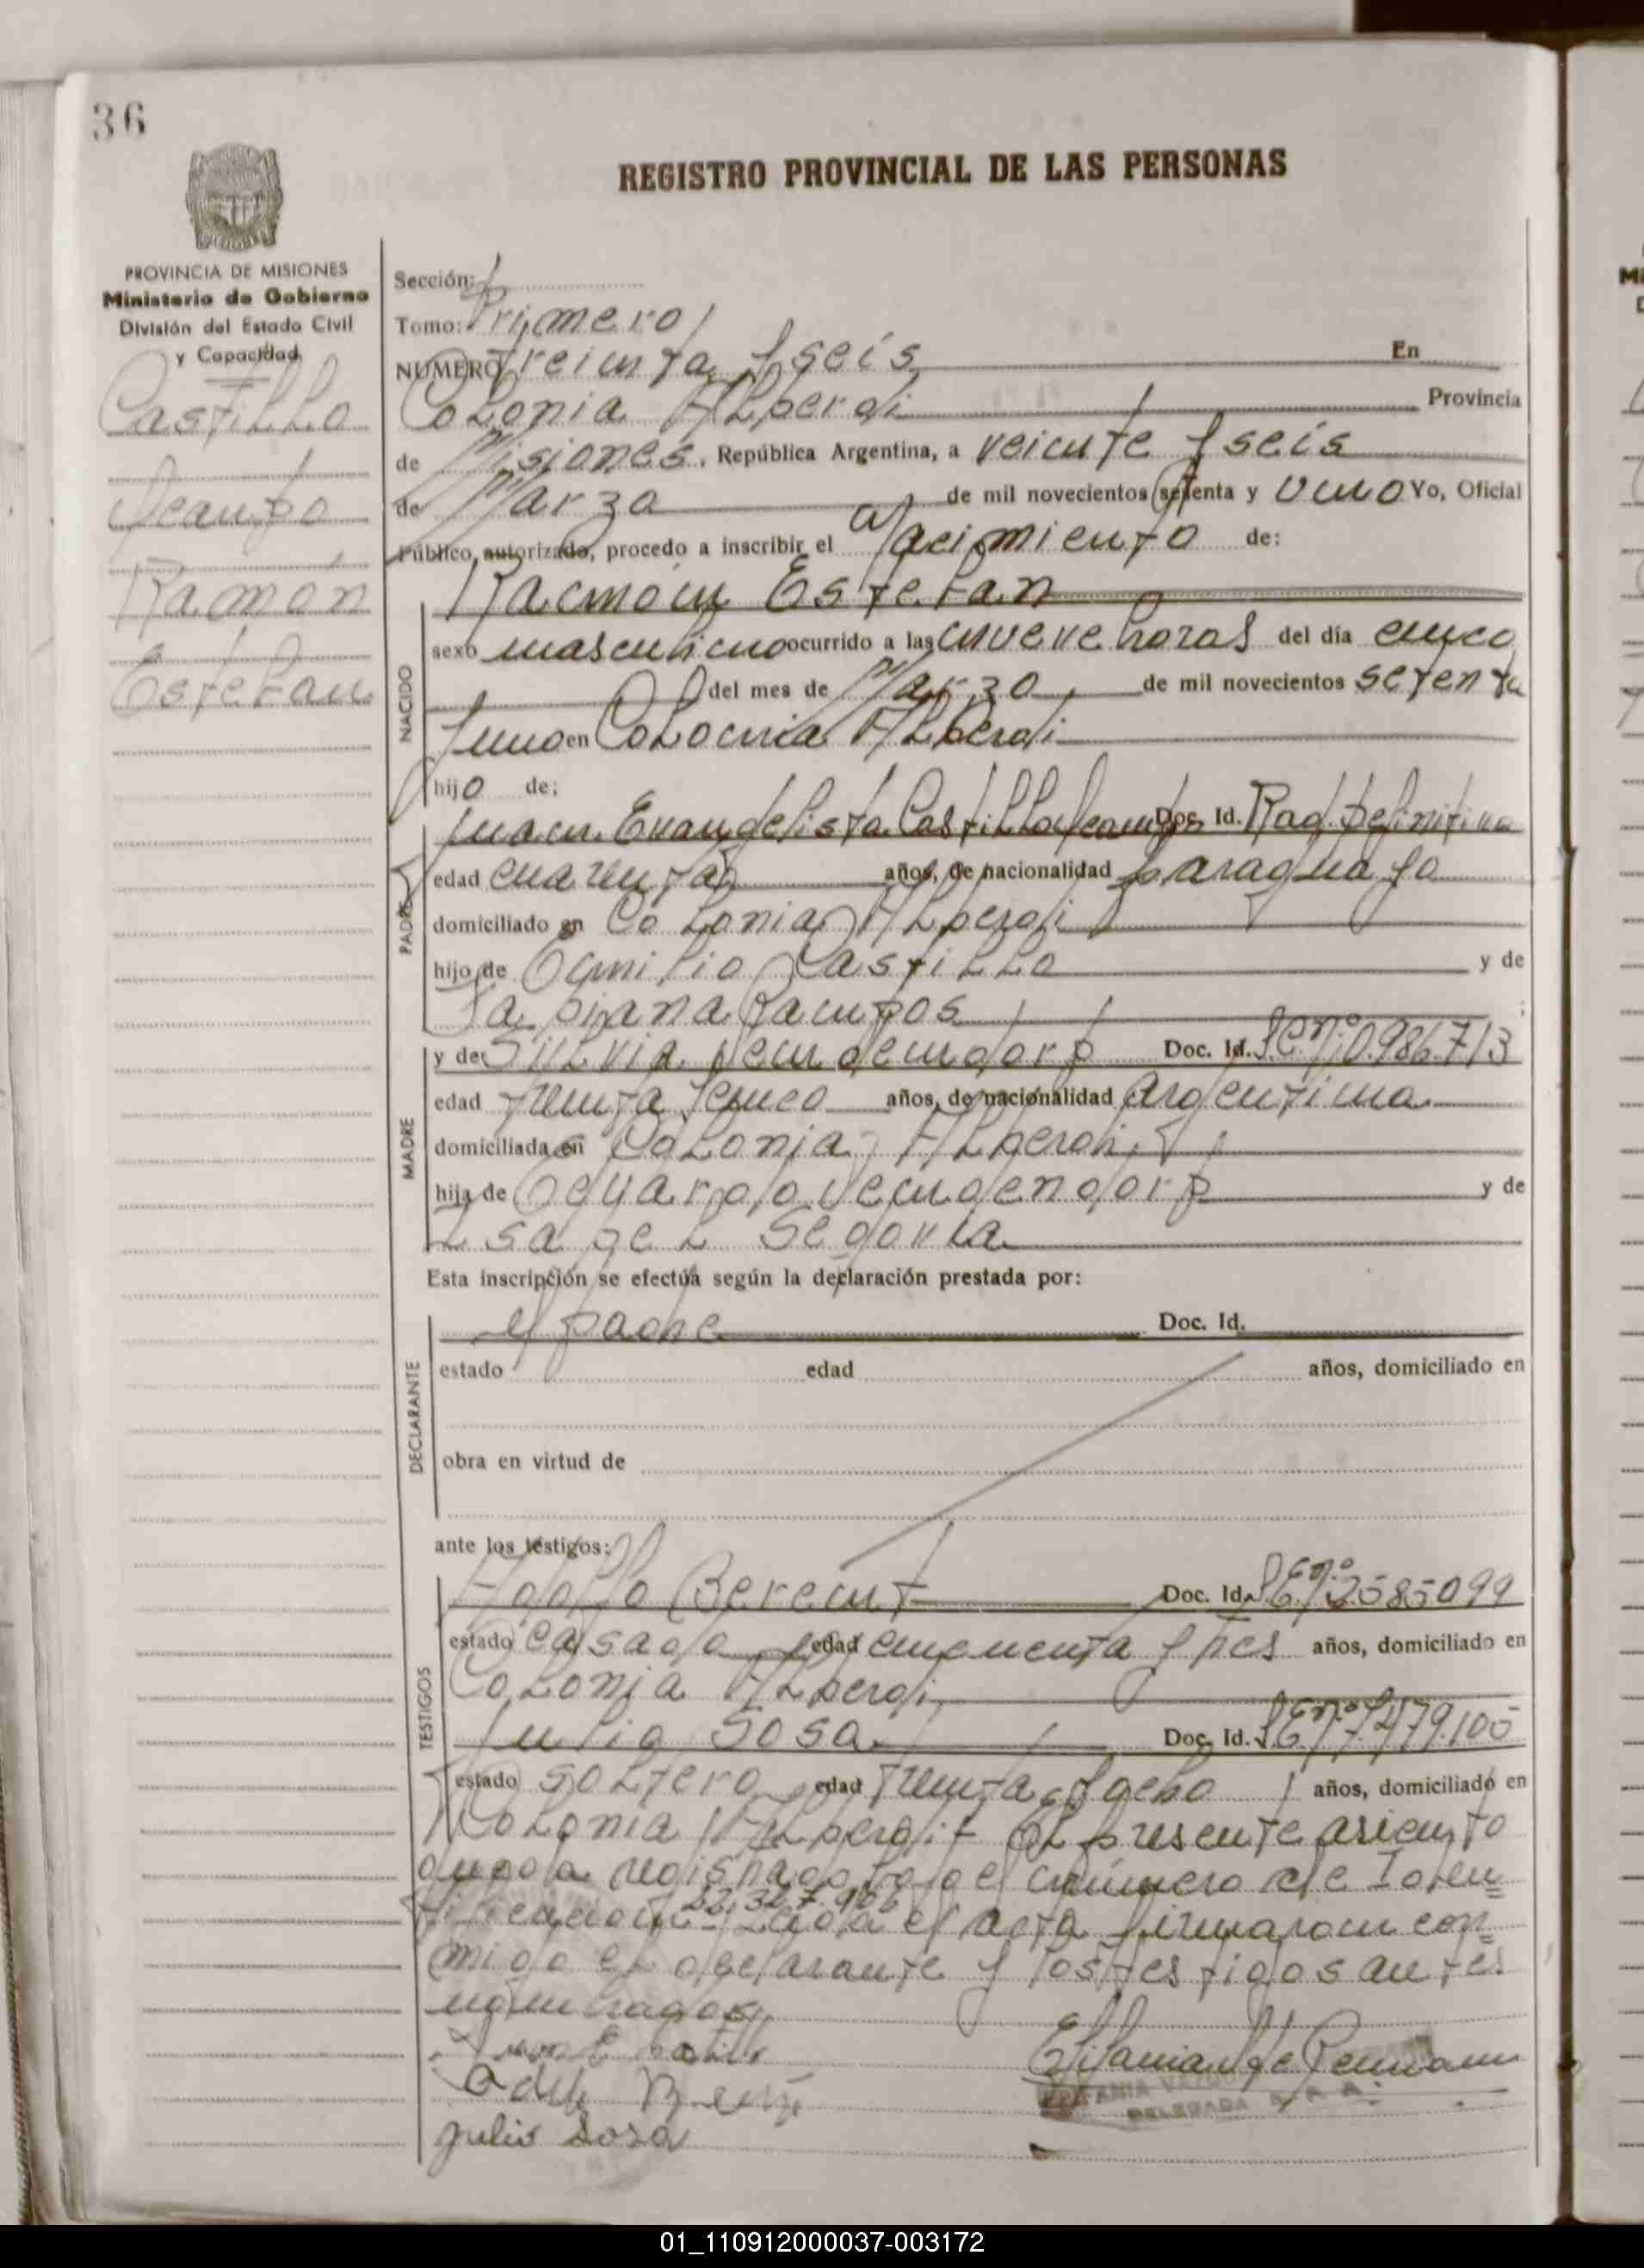 36
REGISTRO PROVINCIAL DE LAS PERSONAS
PROVINCIA DE MISIONES
Ministerio de Gobierno
División del Estado Civil
y Capacidad
Castillo
Ramón
Estefan
Sección:
Tomo: Primero
NUMERO Treinta y seis En
Colonia Alberdi Provincia
de Misiones, República Argentina, a veinte y seis
de Marzo de mil novecientos setenta y uno Yo, Oficial
Público autorizado, procedo a inscribir el Nacimiento de:
Ramón Estefan
NACIDO
sexo masculino ocurrido a las nueve horas del día cinco
del mes de Marzo de mil novecientos setenta
y uno en Colonia Alberdi
hijo de:
PADRE
Juan Evangelista Castillo Doc. Id. Rad. Definitiva
edad cuarenta años, de nacionalidad paraguayo
domiciliado en Colonia Alberdi
hijo de Castillo y de
MADRE
y de Silvia Doc. Id. 0.986.713
edad treinta y cinco años, de nacionalidad Argentina
domiciliada en Colonia Alberdi
hija de y de
Isabel Segovia
Esta inscripción se efectúa según la declaración prestada por:
DECLARANTE
el padre Doc. Id.
estado edad años, domiciliado en
obra en virtud de
ante los testigos:
TESTIGOS
Adolfo Doc. Id. 2585099
estado casado edad cincuenta y tres años, domiciliado en
Colonia Alberdi
Julio Sosa Doc. Id. 7.479.105
estado soltero edad treinta y ocho años, domiciliado en
Colonia Alberdi El presente asiento
queda registrado bajo el número de Iden=
tificación 22.327.906 Leída el acta firmaron con=
migo el declarante y los testigos antes
nombrados
Julio Sosa
DELEGADA
01_110912000037-003172